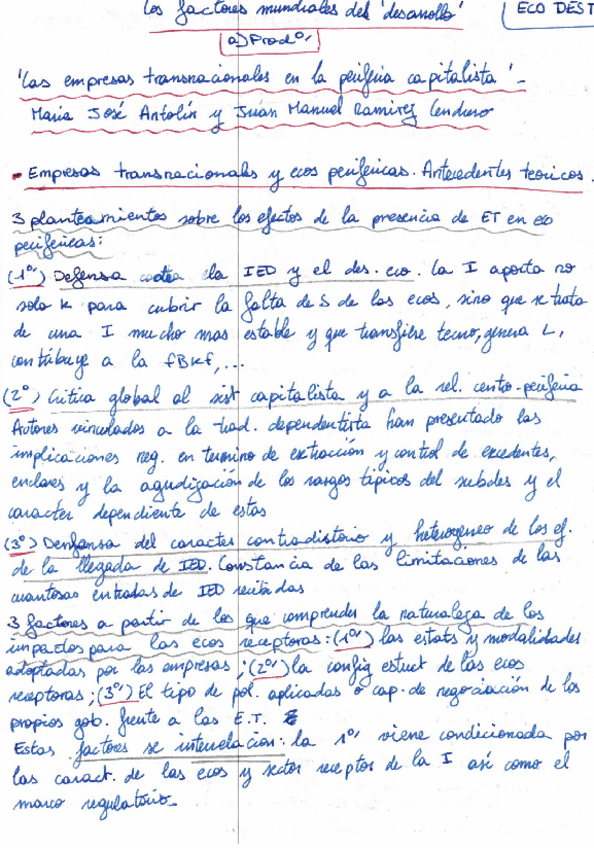 los factores mundiales del 'desarrollo'
ECO DEST
a) Prodº.
'Las empresas transnacionales en la periferia capitalista'-
María José Antolín y Juán Manuel Ramírez Cendrero
- Empresas transnacionales y ecos periféricas. Antecedentes teóricos.
3 planteamientos sobre los efectos de la presencia de ET en eco
periféricas:
(1º) Defensa la IED y el des. eco. la I aporta no
solo K para cubrir la falta de S de las ecos, sino que se trata
de una I mucho mas estable y que transfiere tecno, genera L,
contribuye a la FBKF,...
(2º) Crítica global al sist capitalista y a la rel. centro-periferia
Autores vinculados a la trad. dependentista han presentado las
implicaciones neg. en termino de extracción y control de excedentes,
enclaves y la agudización de los rasgos típicos del subdes y el
caracter dependiente de estas
(3º) Denfensa del caracter contradictorio y heterogeneo de los ef.
de la llegada de IED. Constancia de las limitaciones de las
cuantosas entradas de IED recibidas
3 factores a partir de los que comprender la naturaleza de los
impactos para las ecos receptoras: (1º) las estats y modalidades
adoptadas por las empresas; (2º) la config estruct de las ecos
receptoras; (3º) El tipo de pol. aplicadas o cap. de negociación de los
propios gob. frente a las E.T.
Estas factores se interrelacion: la 1º viene condicionada por
las caract. de las ecos y sector receptor de la I así como el
marco regulatorio-